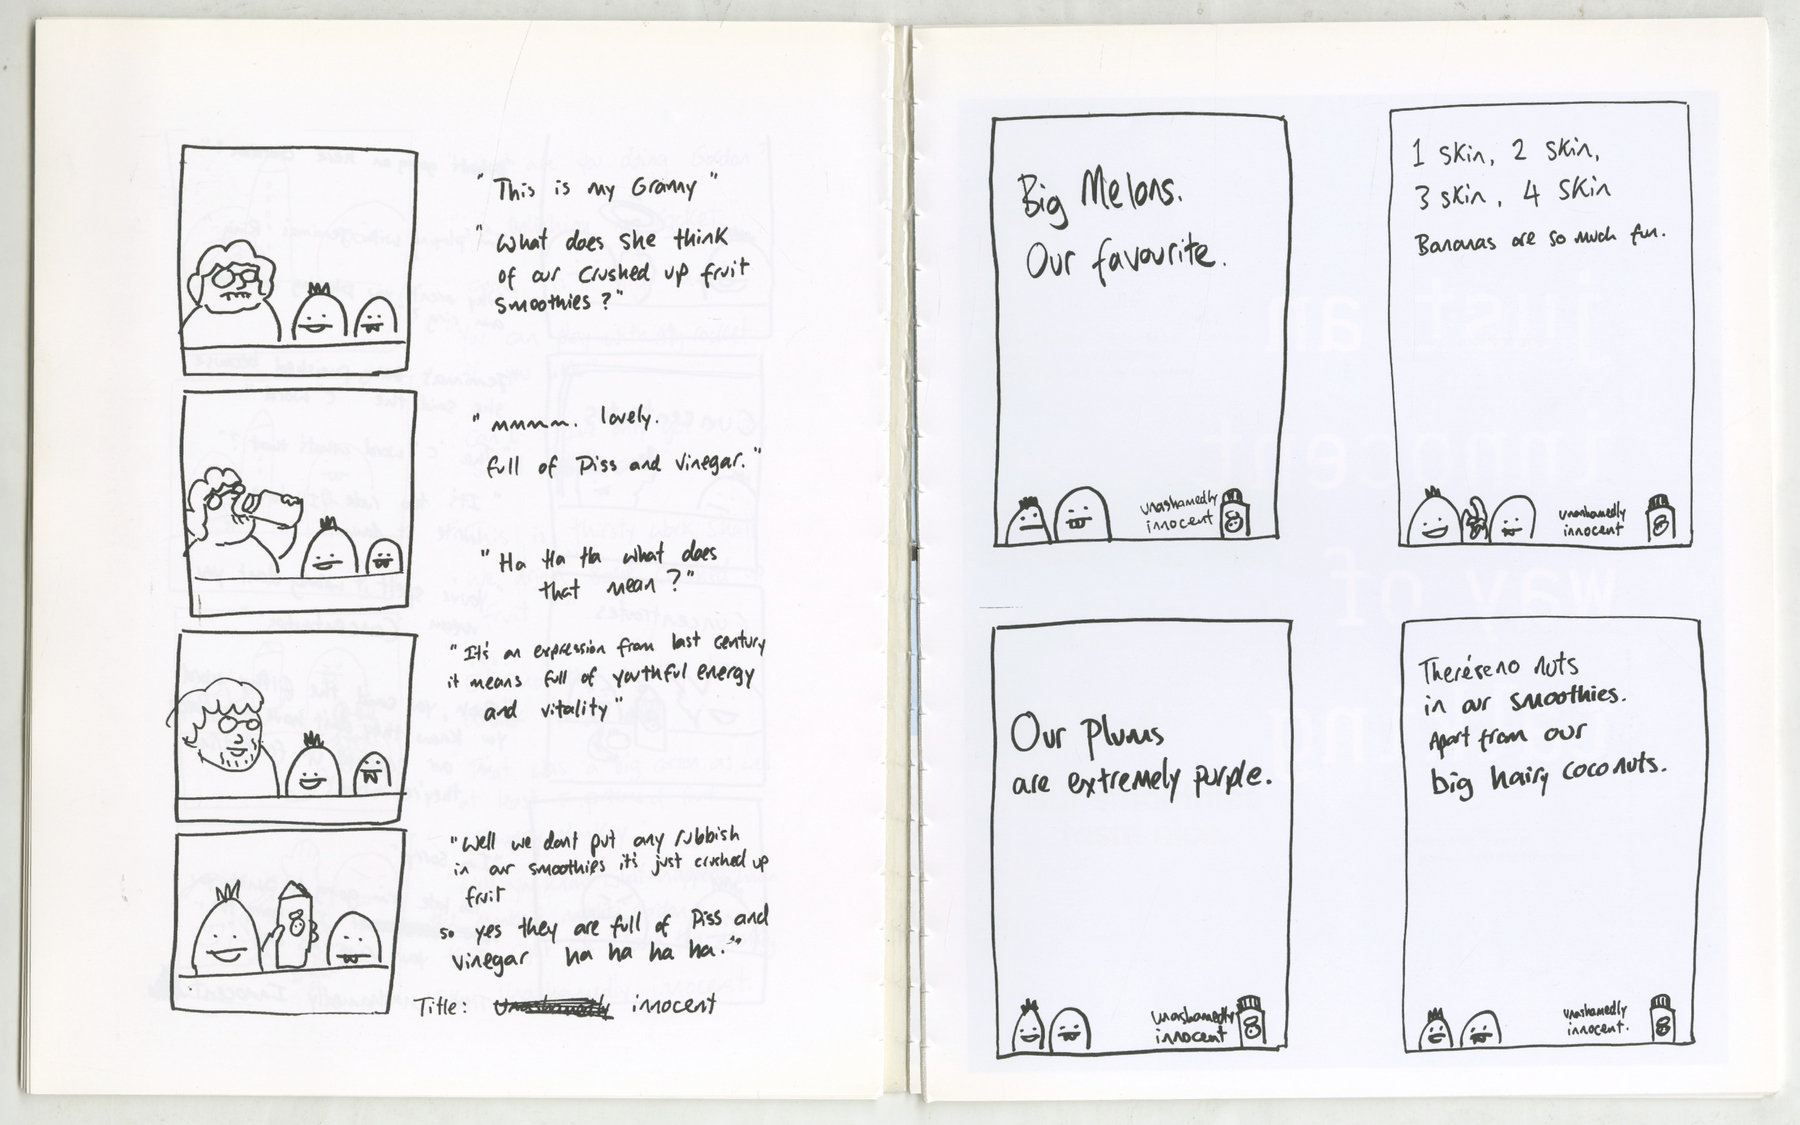 "This is my Granny"
"What does she think
of our crushed up fruit
smoothies?"
"mmmm. lovely.
full of Piss and vinegar."
"Ha Ha Ha what does
that mean?"
"It's an expression from last century
it means full of youthful energy
and vitality"
"Well we dont put any rubbish
in our smoothies it's just crushed up
fruit
so yes they are full of Piss and
vinegar ha ha ha ha."
Title: innocent
Big Melons.
Our favourite.
unashamedly
innocent
1 skin, 2 skin,
3 skin, 4 skin
Bananas are so much fun.
unashamedly
innocent
Our Plums
are extremely purple.
unashamedly
innocent
There's no nuts
in our smoothies.
Apart from our
big hairy coconuts.
unashamedly
innocent.